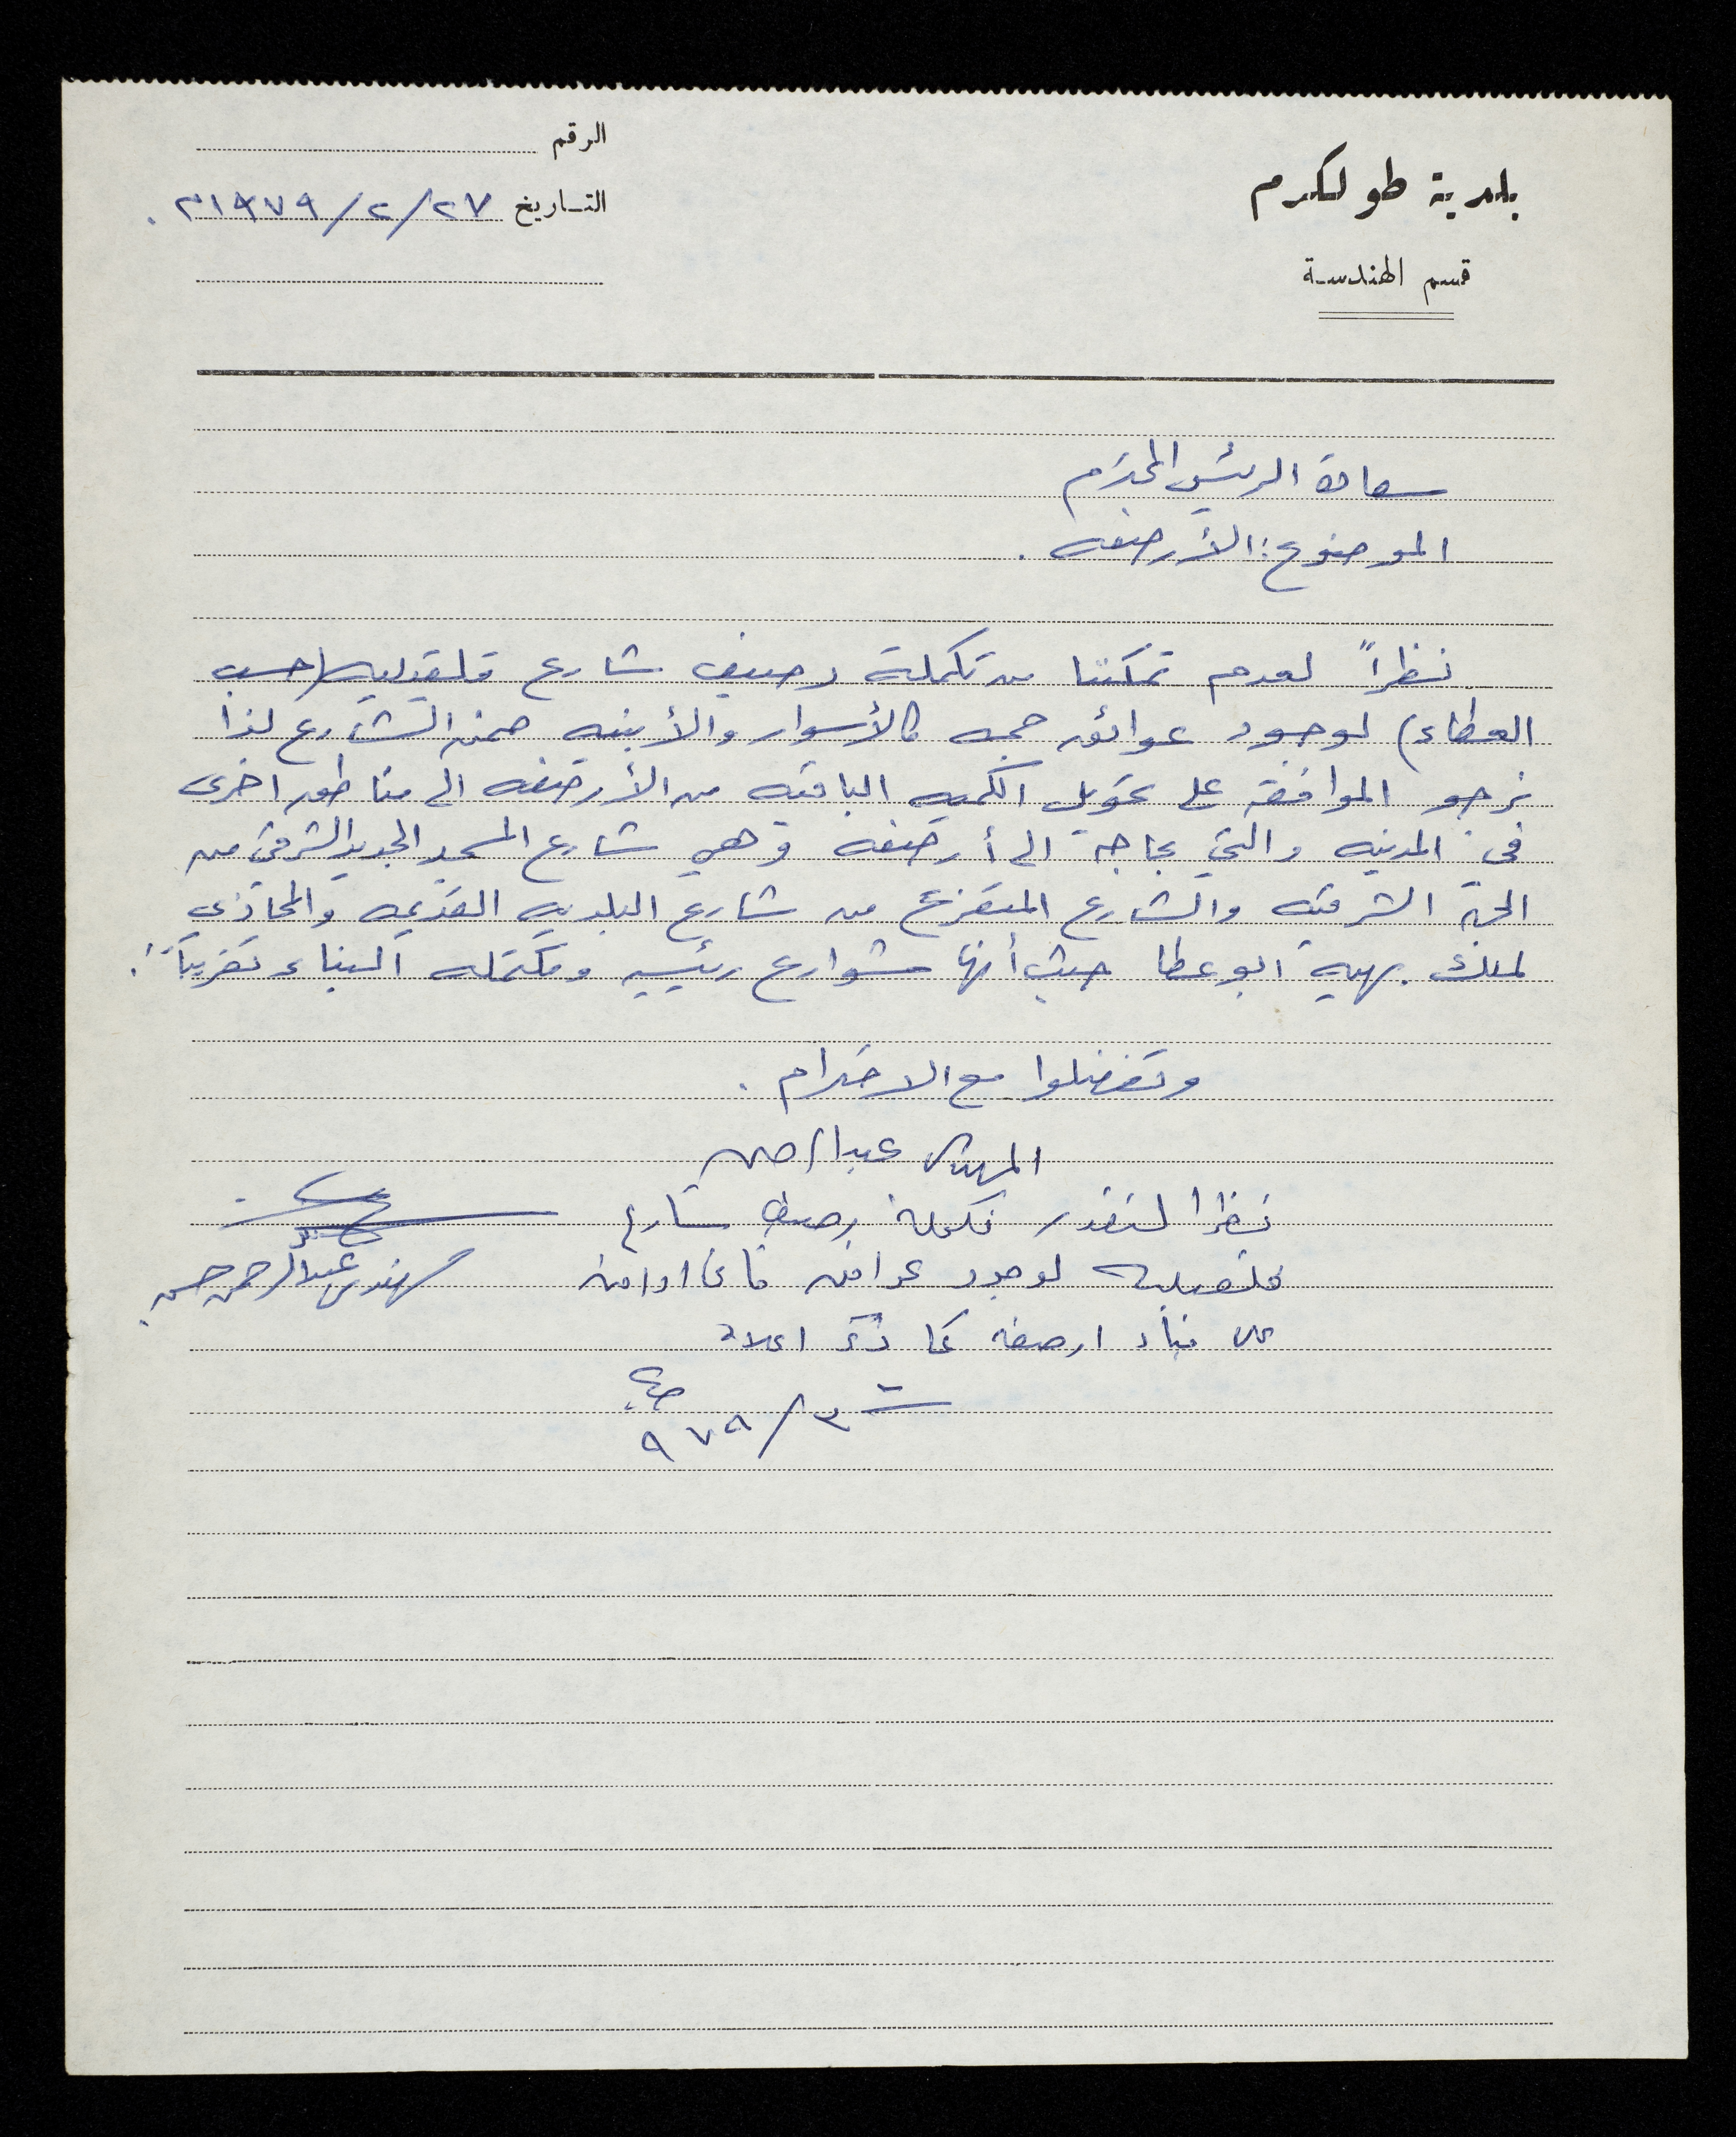 بلدية طولكرم
قسم الهندسة
الرقم
التاريخ ٢٧/٢/١٩٧٩م.
سعادة الرئيس المحترم
الموضوع: الأرصفه.
نظراً لعدم تمكننا من تكملة رصيف شارع قلقيليه (حسب
العطاء) لوجود عوائق جمه كالأسوار والأبنيه ضمن الشارع لذا
نرجو الموافقه على تحويل الكميه الباقيه من الأرصفه الى مناطق اخرى
في المدينه والتي بحاجة الى أرصفه وهي شارع المسجد الجديد الشرقي من
الجهة الشرقيه والشارع المتفرع من شارع البلديه القديمه والمحاذي
لملك بهيه ابو عطا حيث أنها شوارع رئيسيه ومكتمله البناء تقريباً.
وتفضلوا مع الاحترام.
المهندس عبدالرحمن
نظرا لتعذر تكملة رصيف شارع
قلقيليه لوجود عوائق فانني اوافق
على بناء ارصفه كما ذكر اعلاه
مهندس عبدالرحمن حسن
٣/٩٧٩